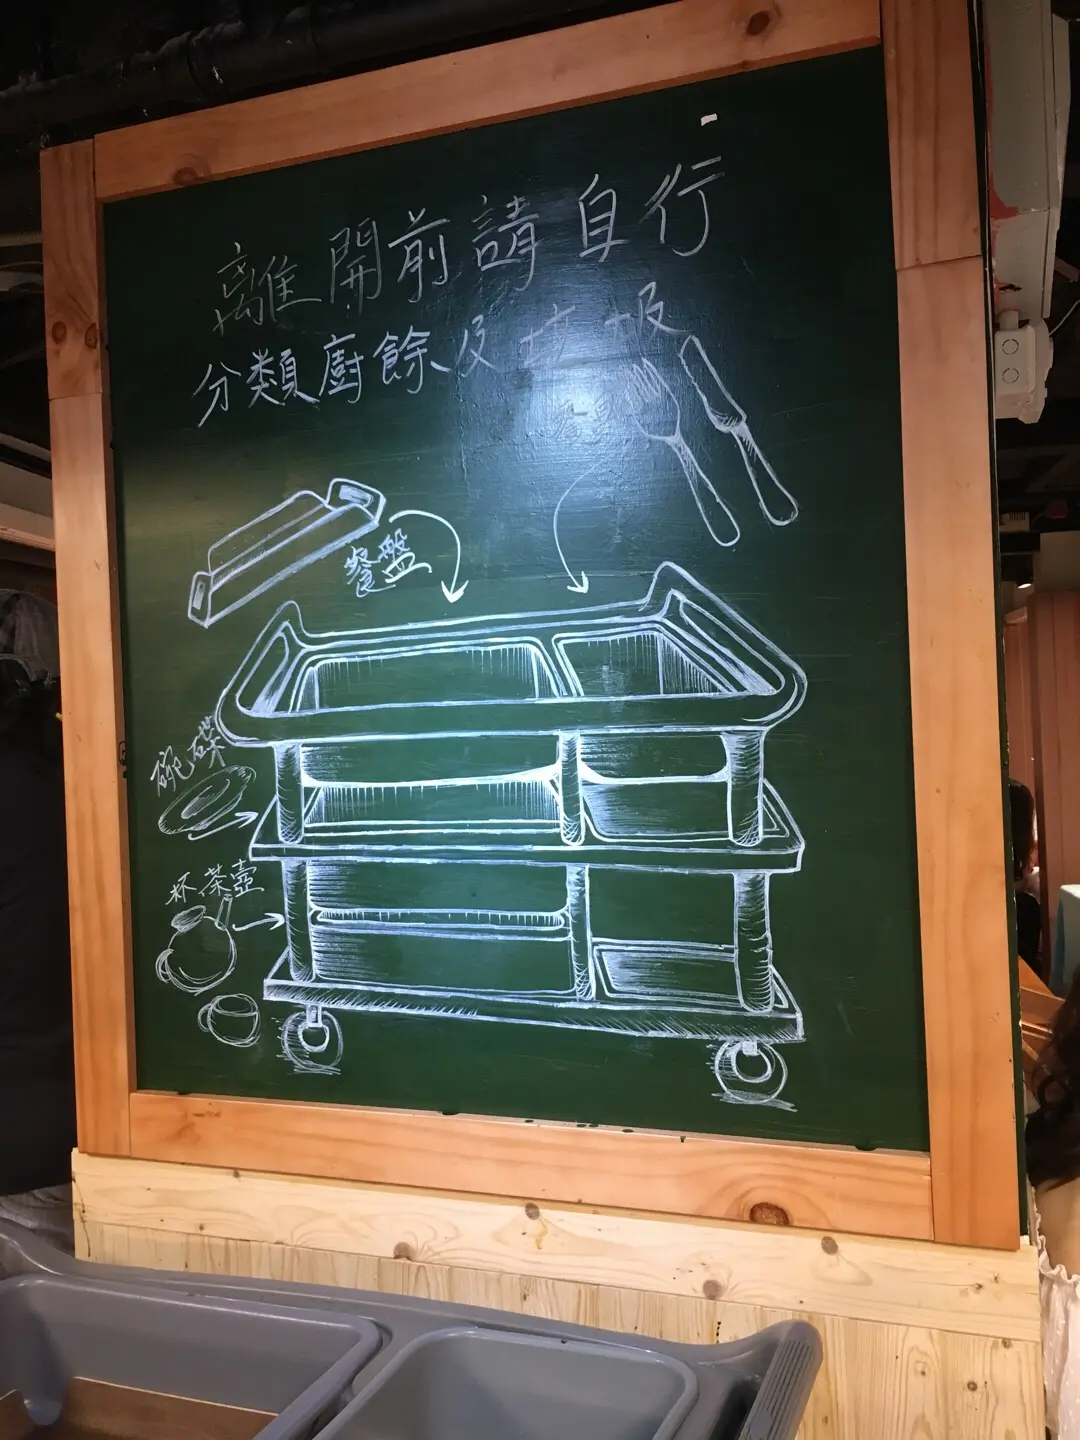 離開前請自行
分類廚餘及垃圾
餐盤
碗碟
杯.茶壺